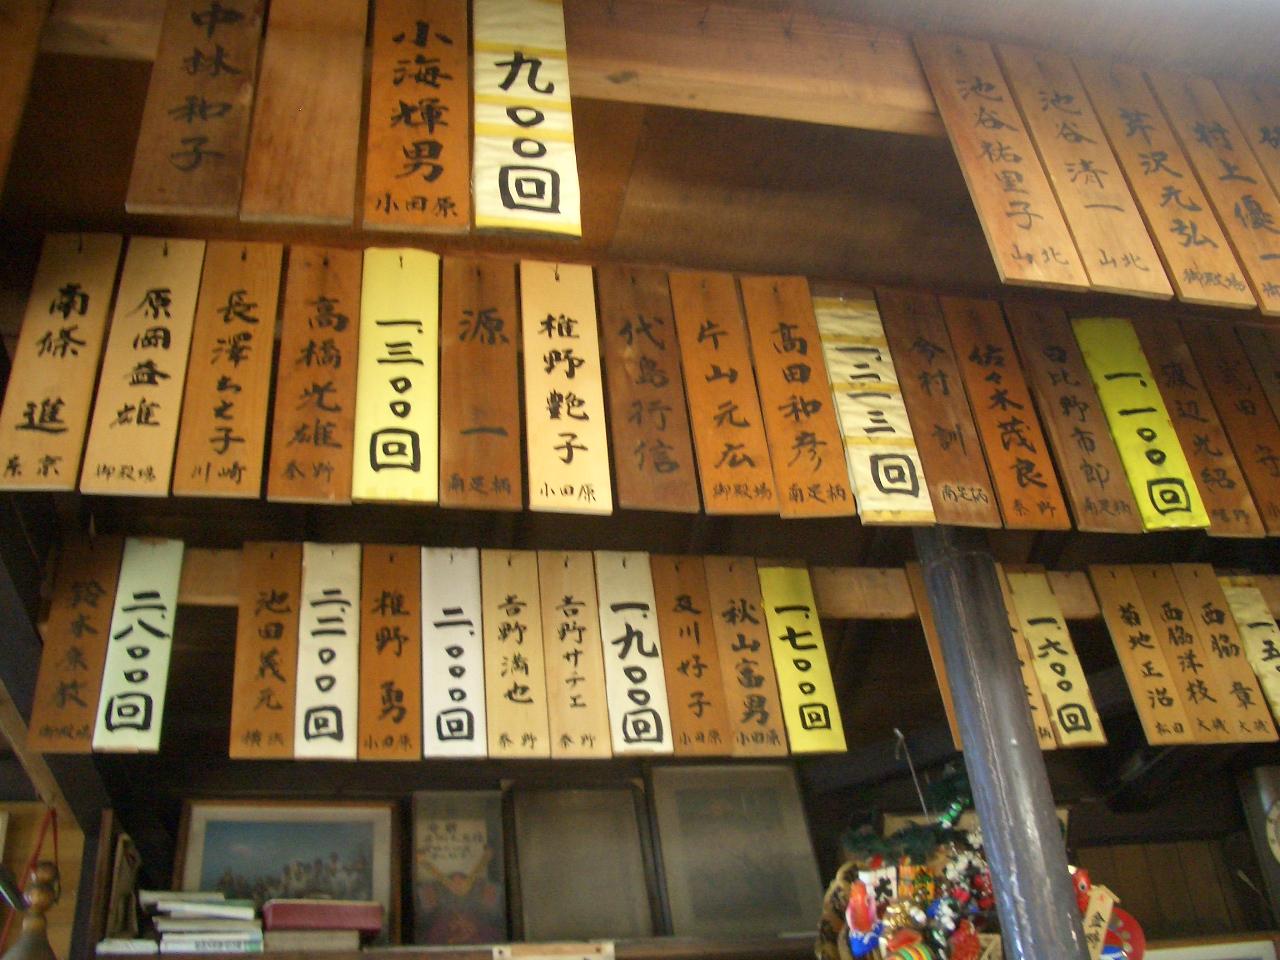 中林和子
小海輝男 小田原
九〇〇回
池谷祐里子 山北
池谷清一 山北
芹沢元弘 御殿場
村上優一
南條進 東京
原岡益雄 御殿場
長澤ちと子 川崎
高橋光雄 秦野
一、三〇〇回
源一 南足柄
椎野艶子 小田原
代島行信
片山元広 御殿場
高田和彦 南足柄
一、二一三回
今村訓 南足柄
佐々木茂良 秦野
日比野市郎 南足柄
一、一〇〇回
渡辺光紹
武田
鈴木泰枝 御殿場
二、八〇〇回
池田義元 横浜
二、三〇〇回
椎野勇 小田原
二、〇〇〇回
吉野満也 秦野
吉野サチエ 秦野
一、九〇〇回
及川好子 小田原
秋山富男 小田原
一、七〇〇回
一、六〇〇回
菊地正沼 松田
西脇洋枝 大磯
西脇章 大磯
一、五